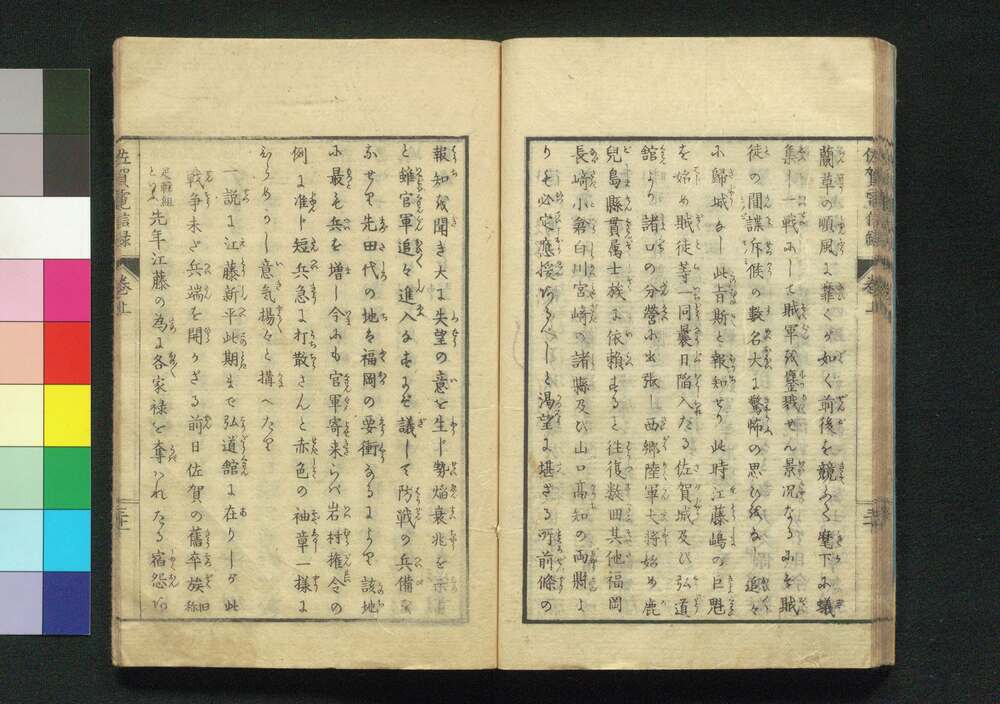 蘭草の順風に靡くが如く前後を競ふて麾下に蟻
集し一戦にして賊軍を鏖戮せん景況なるにぞ賊
徒の間諜斥候の数名大に驚怖の思ひをなし追々
に歸城なし此旨斯と報知せり此時江藤嶋の巨魁
を始め賊徒等一同曩日陥入たる佐賀城及び弘道
館より諸口の分營に出張し西郷陸軍大将始め鹿
兒島縣貫属士族に依頼する と往復数回其他福岡
長崎小倉白川宮崎の諸縣及び山口高知の両縣よ
りも必定應援あるべしと渇望に堪ざる所前條の
佐賀電信録 巻之上
報知を聞き大に失望の意を生し勢焔衰兆を示す
と雖官軍追々進入なすよしを議して防戦の兵備を
なせり先田代の地を福岡の要衝なるによりて該地
に最も兵を増し今にも官軍寄来らバ岩村権令の
例に准し短兵急に打散さんと赤色の袖章一様に
ひらめかし意気揚々と搆へたり
一説に江藤新平此期まで弘道館に在りしが此
戦争未だ兵端を開かざる前日佐賀の舊卒族 旧称
足軽組といふ 先年江藤の為に各家禄を奪ハれたる宿怨あり
佐賀電信録 巻之上